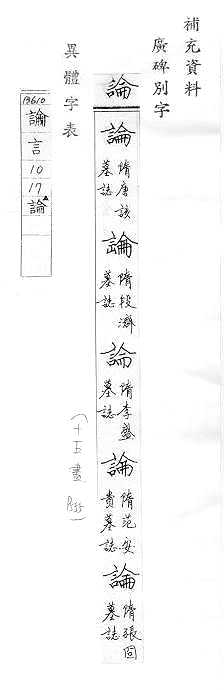 補充資料
廣碑別字
論
論 隋唐該墓誌
論 隋段濟墓誌
論 隋李盛墓誌
論 隋范安貴墓誌
論 隋張囧墓誌
(十五畫 P.355)
異體字表
論
言
10
17
論